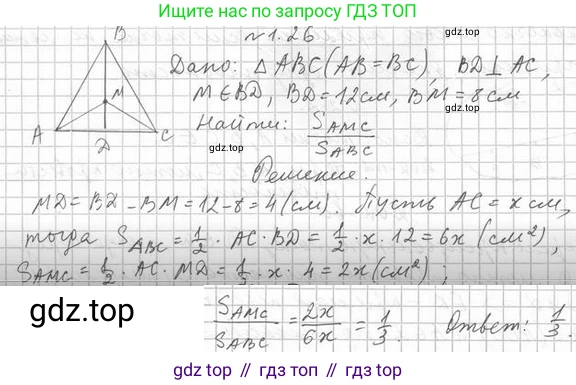 Ищите нас по запросу ГДЗ ТОП
gdz.top
№1.26
B
M
A
D
C
Дано: △ ABC (AB = BC), BD ⊥ AC,
M ∈ BD, BD = 12 см, BM = 8 см
Найти: S_AMC / S_ABC
Решение.
MD = BD - BM = 12 - 8 = 4 (см). Пусть AC = x см,
тогда S_ABC = 1/2 · AC · BD = 1/2 · x · 12 = 6x (см²),
S_AMC = 1/2 · AC · MD = 1/2 · x · 4 = 2x (см²);
gdz.top
S_AMC / S_ABC = 2x / 6x = 1/3. Ответ: 1/3.
gdz.top // гдз топ // gdz.top